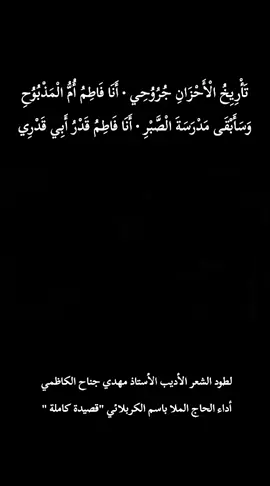 تَأْرِيخُ الْأَحْزَانِ جُرُوُحِي • أَنَا فَاطِمُ أُمُّ الْمَذْبُوُحِ
وَسَأَبْقَى مَدْرَسَةَ الْصَّبْرِ • أَنَا فَاطِمُ قَدْرُ أَبِي قَدْرِي
لطود الشعر الأديب الأستاذ مهدي جناح الكاظمي
أداء الحاج الملا باسم الكربلائي "قصيدة كاملة "